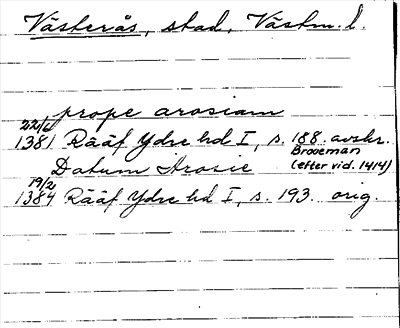 Västerås, stad, Västm. l.
prope arosiam
22/6
1381 Rääf Ydre hd I, s. 188. avskr.
Brooeman
Datum Arosie (efter vid. 1414)
19/2
1384 Rääf Ydre hd I, s. 193. orig.